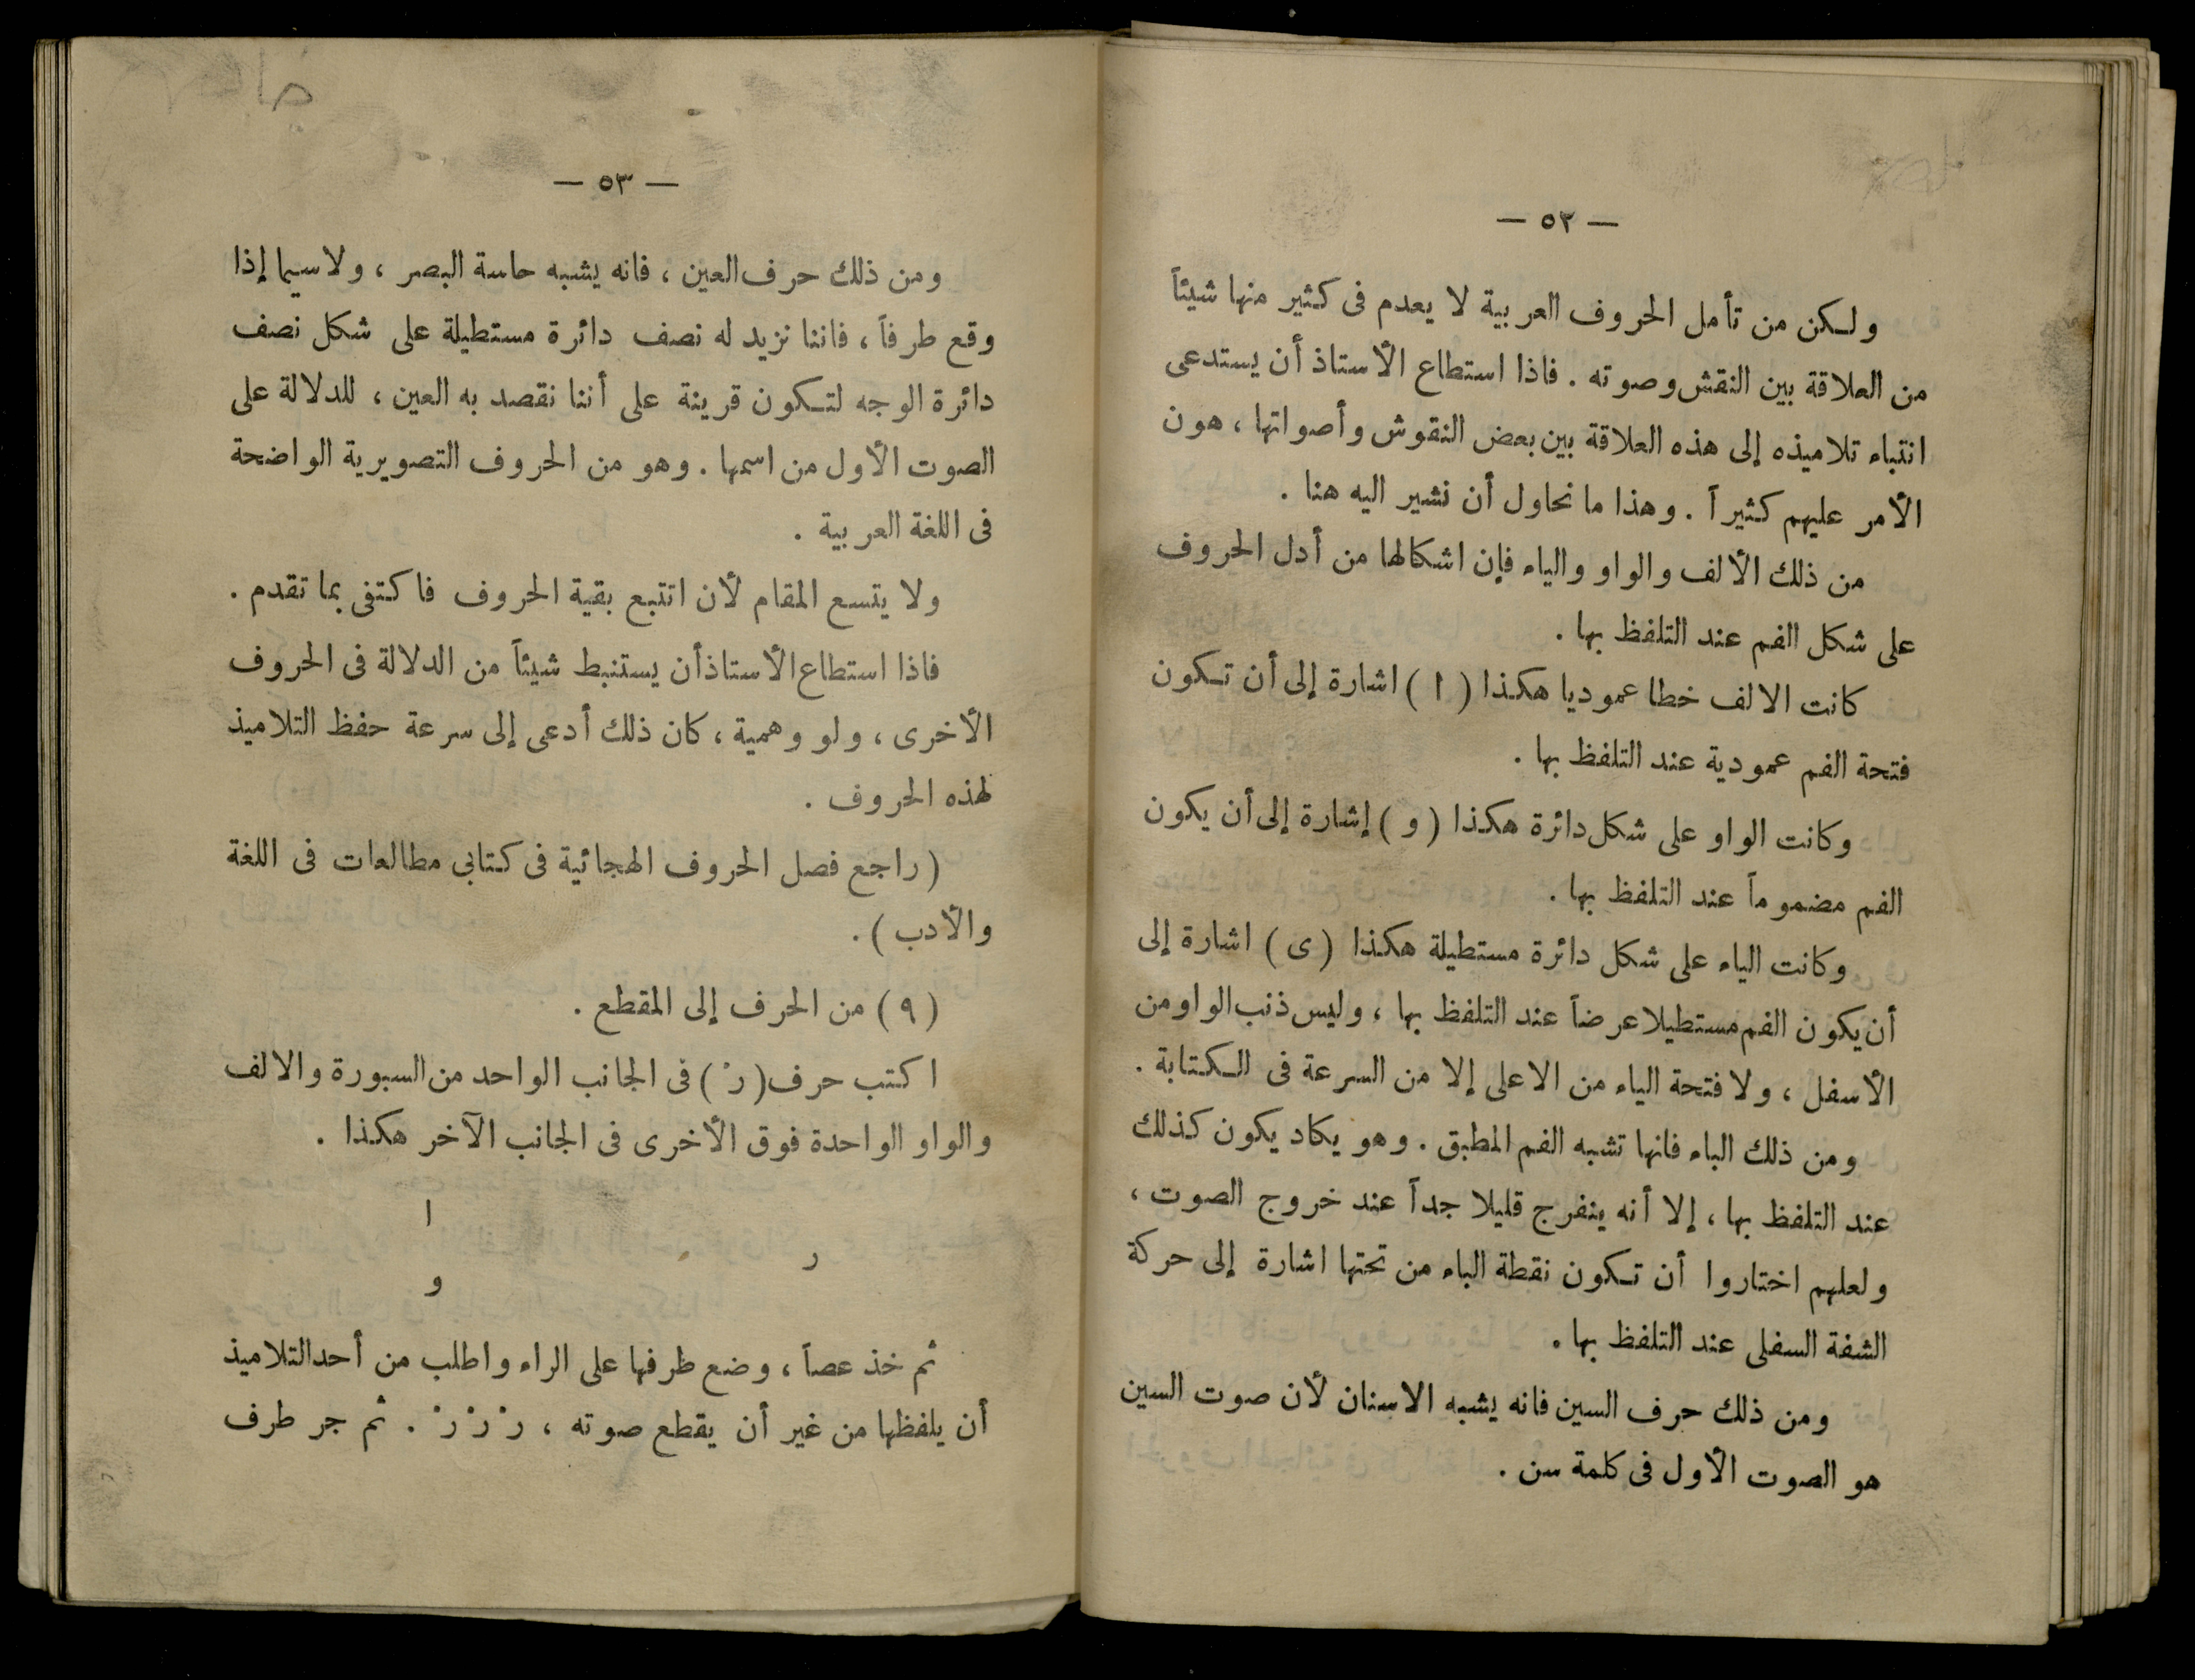 — ٥٢ —
ولكن من تأمل الحروف العربية لا يعدم فى كثير منها شيئاً
من العلاقة بين النقش وصوته . فاذا استطاع الأستاذ أن يستدعى
انتباه تلاميذه إلى هذه العلاقة بين بعض النقوش وأصواتها ، هون
الأمر عليهم كثيراً . وهذا ما نحاول أن نشير اليه هنا .
من ذلك الألف والواو والياء فإن اشكالها من أدل الحروف
على شكل الفم عند التلفظ بها .
كانت الالف خطا عموديا هكذا ( ا ) اشارة إلى أن تكون
فتحة الفم عمودية عند التلفظ بها .
وكانت الواو على شكل دائرة هكذا ( و ) إشارة إلى أن يكون
الفم مضموماً عند التلفظ بها .
وكانت الياء على شكل دائرة مستطيلة هكذا ( ى ) اشارة إلى
أن يكون الفم مستطيلا عرضاً عند التلفظ بها ، وليس ذنب الواو من
الأسفل ، ولا فتحة الياء من الاعلى إلا من السرعة فى الكتابة .
ومن ذلك الباء فانها تشبه الفم المطبق . وهو يكاد يكون كذلك
عند التلفظ بها ، إلا أنه ينفرج قليلا جداً عند خروج الصوت ،
ولعلهم اختاروا أن تكون نقطة الباء من تحتها اشارة إلى حركة
الشفة السفلى عند التلفظ بها .
ومن ذلك حرف السين فانه يشبه الاسنان لأن صوت السين
هو الصوت الأول فى كلمة سن .
— ٥٣ —
ومن ذلك حرف العين ، فانه يشبه حاسة البصر ، ولاسيما إذا
وقع طرفاً ، فاننا نزيد له نصف دائرة مستطيلة على شكل نصف
دائرة الوجه لتكون قرينة على أننا نقصد به العين ، للدلالة على
الصوت الأول من اسمها . وهو من الحروف التصويرية الواضحة
فى اللغة العربية .
ولا يتسع المقام لأن اتتبع بقية الحروف فاكتفى بما تقدم .
فاذا استطاع الأستاذ أن يستنبط شيئاً من الدلالة فى الحروف
الأخرى ، ولو وهمية ، كان ذلك أدعى إلى سرعة حفظ التلاميذ
لهذه الحروف .
( راجع فصل الحروف الهجائية فى كتابى مطالعات فى اللغة
والأدب ) .
( ٩ ) من الحرف إلى المقطع .
اكتب حرف ( رْ ) فى الجانب الواحد من السبورة والالف
والواو الواحدة فوق الأخرى فى الجانب الآخر هكذا .
ا
ر
و
ثم خذ عصاً ، وضع طرفها على الراء واطلب من أحد التلاميذ
أن يلفظها من غير أن يقطع صوته ، رْ رْ رْ . ثم جر طرف